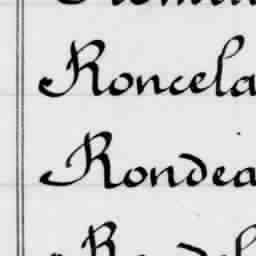 Roncela
Rondea